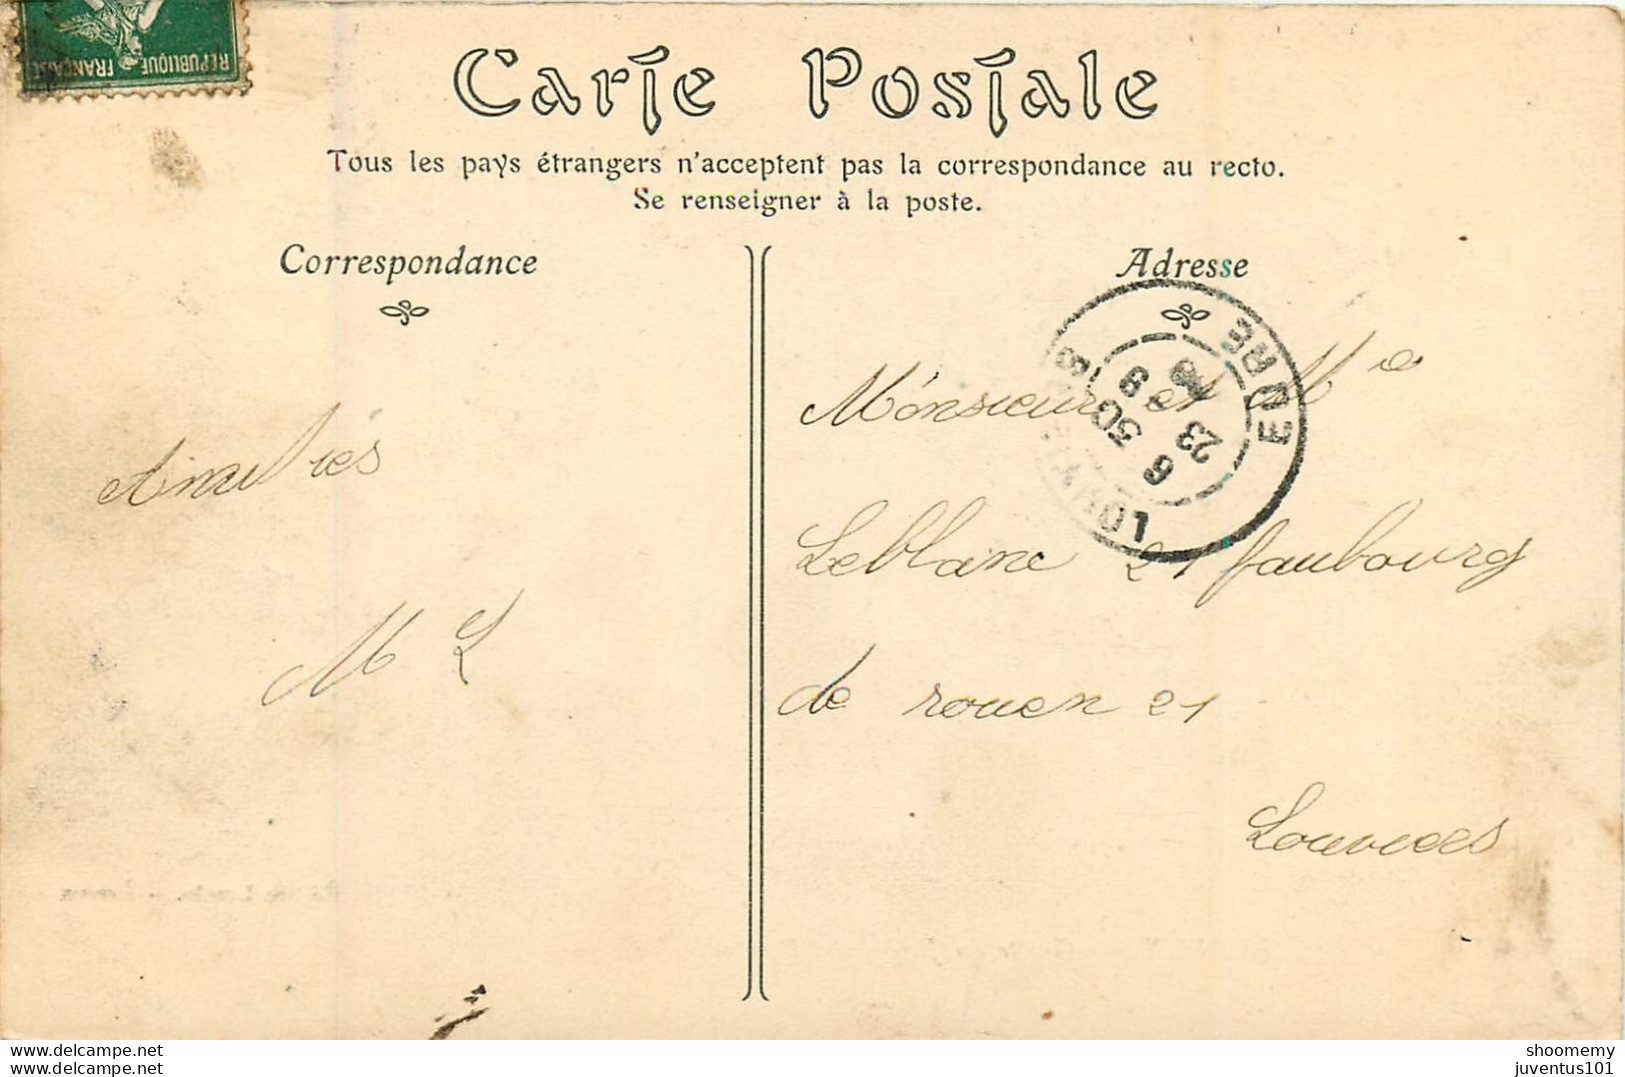 RÉPUBLIQUE FRANÇAISE
Carte Postale
Tous les pays étrangers n'acceptent pas la correspondance au recto.
Se renseigner à la poste.
Correspondance
Amitiés
M L
Adresse
Monsieur et Me
Leblanc 21 faubourg
de rouen 21
Louviers
LOUVIERS EURE
6 30
23 9
www.delcampe.net
shoomemy
juventus101